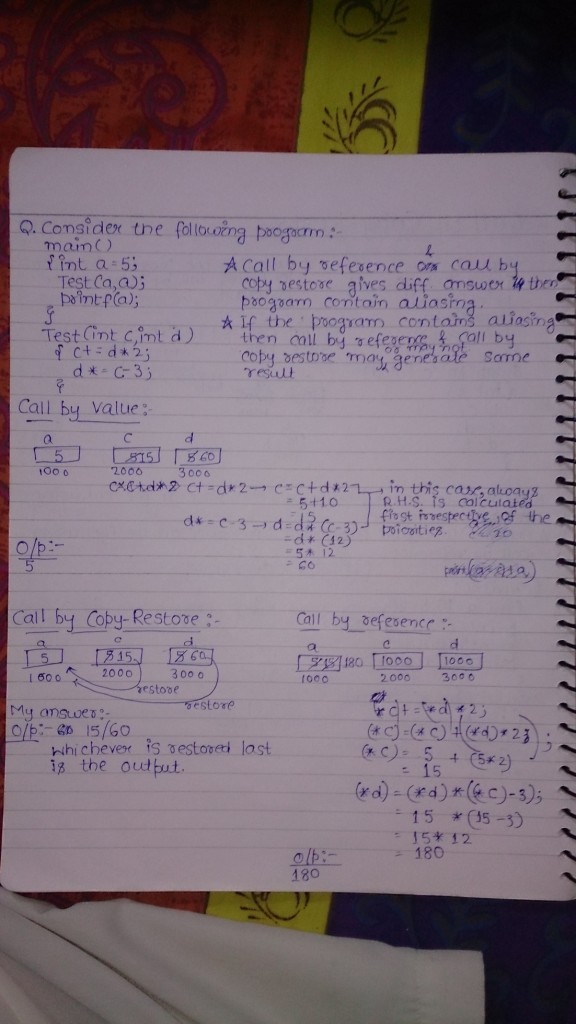 Q. Consider the following program:-
main()
{ int a=5;
Test(a,a);
printf(a);
}
Test(int c, int d)
{ c+= d*2;
d*= c-3;
}
★ Call by reference & call by
copy restore gives diff. answer then
program contain aliasing.
★ If the program contains aliasing
then call by reference & call by
copy restore may or may not generate same
result
Call by Value:-
a c d
5 5 15 5 60
1000 2000 3000
c+= d*2 → c = c+d*2
= 5+10
= 15
d*= c-3 → d = d*(c-3)
= d*(12)
= 5*12
= 60
in this case, always
R.H.S. is calculated
first irrespective of the
priorities.
O/p:-
5
Call by Copy-Restore:-
a c d
5 5 15 5 60
1000 2000 3000
restore
restore
My answer:-
O/p:- 15/60
whichever is restored last
is the output.
Call by reference:-
a c d
5 15 180 1000 1000
1000 2000 3000
*c+=(*d)*2;
(*c)=(*c)+((*d)*2);
(*c)= 5 + (5*2)
= 15
(*d)=(*d)*((*c)-3);
= 15 *(15-3)
= 15*12
= 180
O/p:-
180